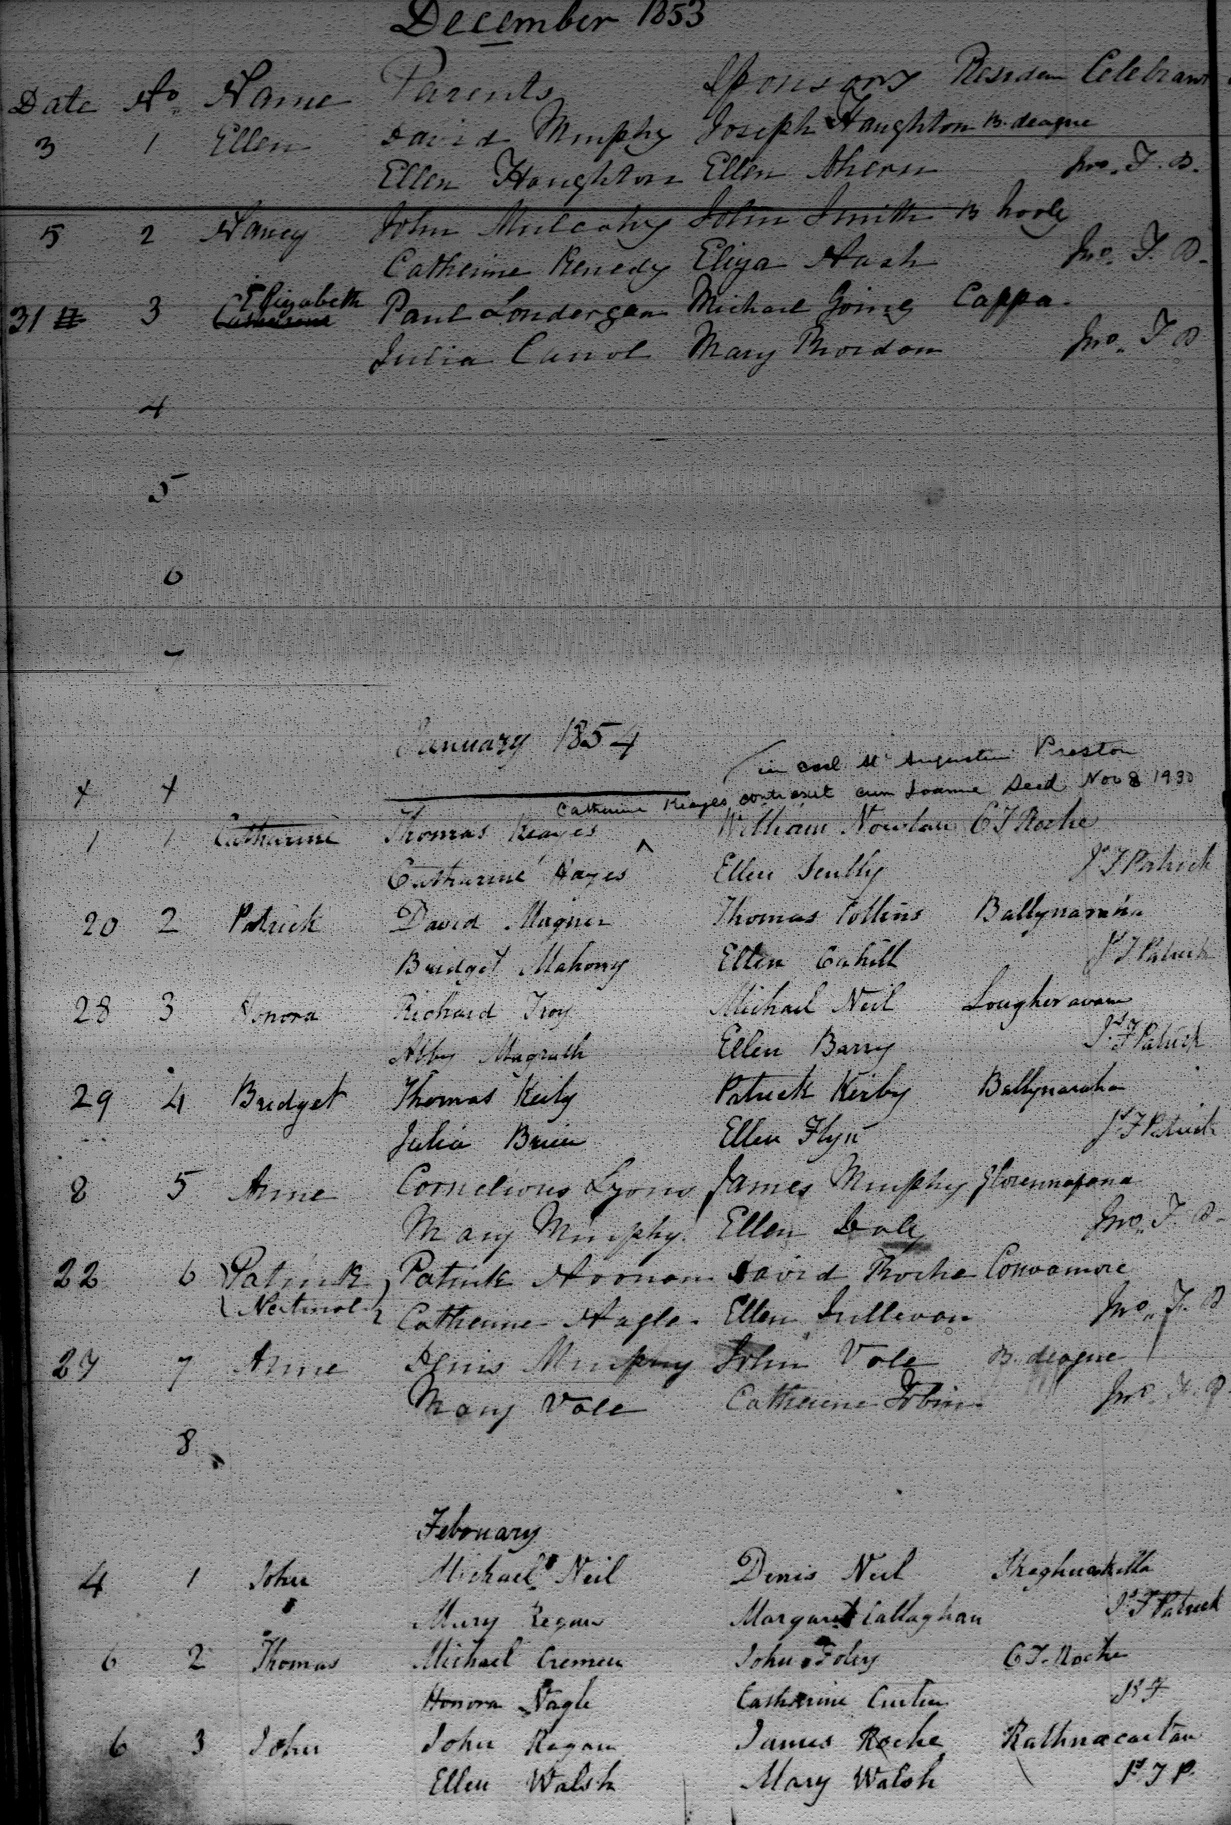 December 1853
Date No. Name Parents Sponsors Residen Celebrant
3 1 Ellen David Murphy Joseph Haughton B. deague
Ellen Haughton Ellen Ahern Jno. F. B.
5 2 Nancy John Mulcahy John Smith B hooly
Catherine Kenedy Eliza Nash Jno. F. B.
31 3 Elizabeth Paul Londergan Michael Joing Cappa
Julia Carrol Mary Riordan Jno. F B
4
5
6
7
January 1854
(in eccl St Augustin Preston
x x Catherine Keayes contraxit cum Joanne Deed Nov 8 1930
1 1 Catharine Thomas Keayes William Nowlan C T Roche
Catharine Hayes ^ Ellen Scully Js F Patrick
20 2 Patrick David Magner Thomas Collins Ballynaraha
Bridget Mahony Ellen Cahill Js F Patrick
28 3 Honora Richard Troy Michael Neil
Abby Magrath Ellen Barry Js F Patrick
29 4 Bridget Thomas Keily Patrick Kirby Ballynaraha
Julia Brien Ellen Flyn Js F Patrick
8 5 Anne Cornelious Lyons James Murphy
Mary Murphy Ellen Daly Jno. F. B.
22 6 Patrick Patrick Noonan David Roche Convamore
Catherine Nagle Ellen Sullivan Jno. F. B
27 7 Anne Denis Murphy John Vale B. deague
Mary Vale Catherine Tobin Jno. F. B
8
Febouary
4 1 John Michael Neil Denis Neil
Mary Regan Margaret Callaghan Js F Patrick
6 2 Thomas Michael Cremen John Foley C T. Roche
Honora Nagle Catharine Curten Js F
6 3 John John Regan James Roche Rathnacartan
Ellen Walsh Mary Walsh Js F P.